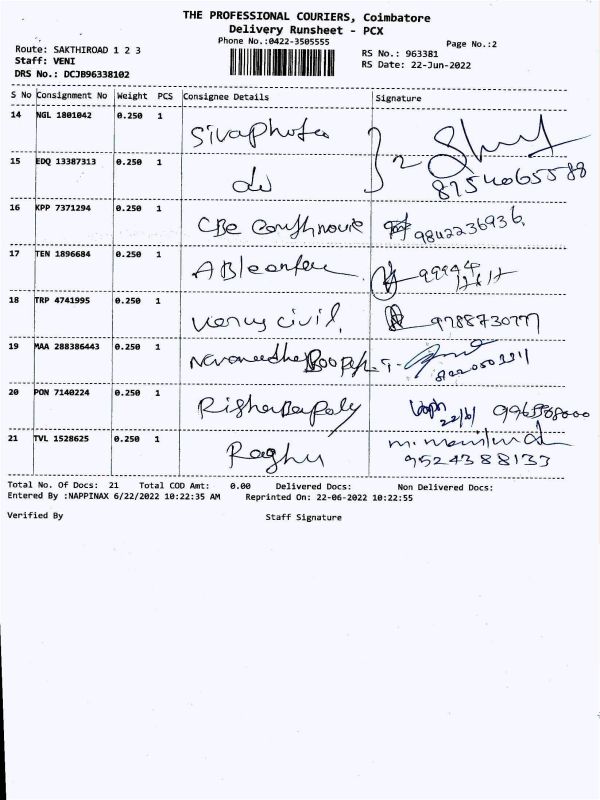 THE PROFESSIONAL COURIERS, Coimbatore
Delivery Runsheet - PCX
Phone No.:0422-3505555
Page No.:2
Route: SAKTHIROAD 1 2 3
RS No.: 963381
Staff: VENI
RS Date: 22-Jun-2022
DRS No.: DCJB96338102
S No Consignment No Weight PCS Consignee Details Signature
14 NGL 1801042 0.250 1 Sivaphoto
15 EDQ 13387313 0.250 1 do 2 8754065588
16 KPP 7371294 0.250 1 CBE 9842236936
17 TEN 1896684 0.250 1
18 TRP 4741995 0.250 1 Venus civil. 9788730777
19 MAA 288386443 0.250 1
20 PON 7140224 0.250 1 22/6/
21 TVL 1528625 0.250 1 Raghu 9524388133
Total No. Of Docs: 21 Total COD Amt: 0.00 Delivered Docs: Non Delivered Docs:
Entered By :NAPPINAX 6/22/2022 10:22:35 AM Reprinted On: 22-06-2022 10:22:55
Verified By Staff Signature